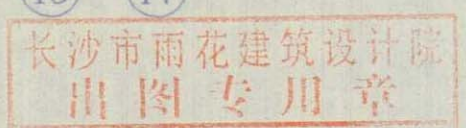 长沙市雨花建筑设计院
出图专用章